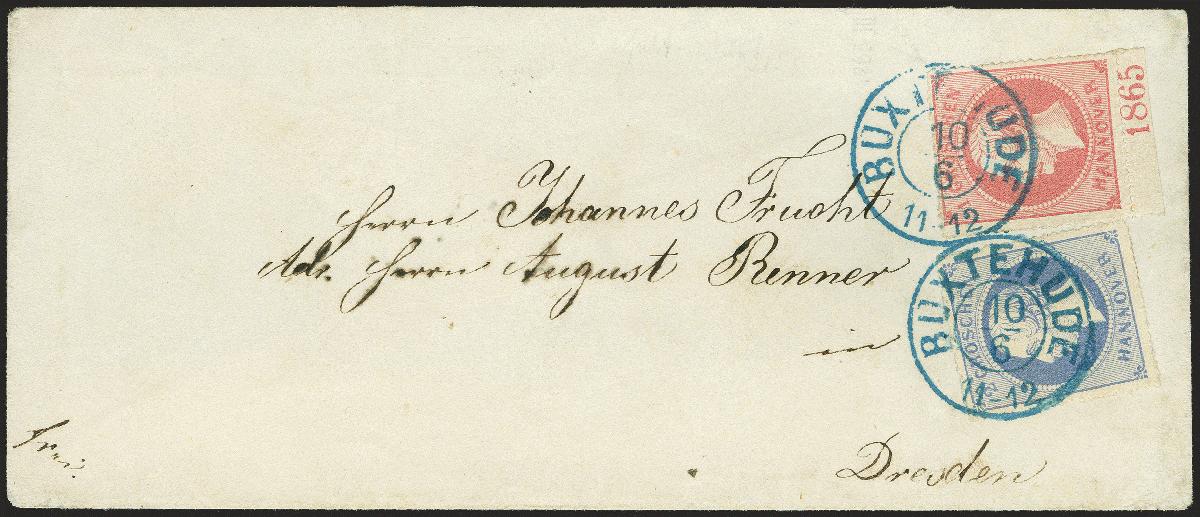 Herrn Johannes Frucht
Adr. Herrn August Renner
in
Dresden
frei.
BUXTEHUDE
10
6
11-12
HANNOVER
1865
BUXTEHUDE
10
6
11-12
HANNOVER